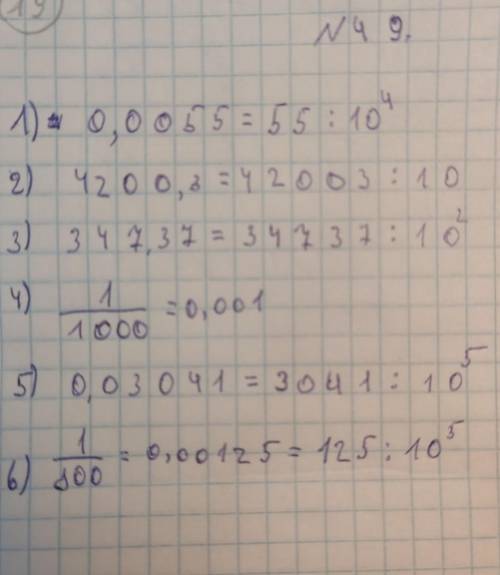 19
N 4 9.
1) 0,0055 = 55 : 10⁴
2) 4200,3 = 42003 : 10
3) 347,37 = 34737 : 10²
4) 1/1000 = 0,001
5) 0,03041 = 3041 : 10⁵
6) 1/800 = 0,00125 = 125 : 10⁵